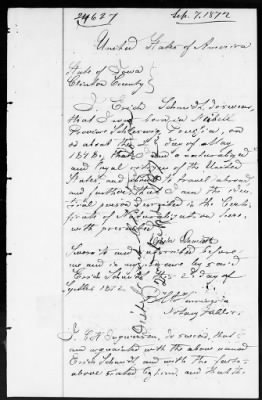 24627
Sep. 7. 1872
United States of America
State of Iowa
Clinton County
I Erich Schmidt, do swear,
that I was born in
Province Schleswig Prussia, on
or about the day of May
that I am a naturalized
and loyal citizen of the United
States and about to travel abroad,
and further that I am the iden-
tical person described in the Certi-
ficate of Naturalization here-
with presented
Erich Schmidt
Sworn to and subscribed before
me and in my presence by said
Erich Schmidt this 2d day of
1872
Notary Public
I. do swear, that I
am acquainted with the above named
Erich Schmidt, and with the facts
above stated by him, and that the